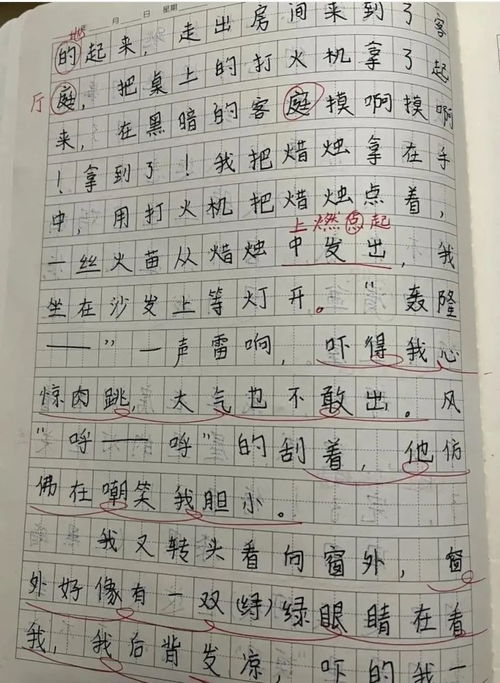 月 日 星期
的起来，走出房间来到了客
厅
庭，把桌上的打火机拿了起
来，在黑暗的客庭摸啊摸啊
！拿到了！我把猎烛拿在手
中，用打火机把猎烛点着，
上燃点起
一丝火苗从猎烛中发出，我
坐在沙发上等灯开。“轰隆
——”一声雷响，吓得我心
惊肉跳，大气也不敢出。风
“呼——呼”的刮着，他仿
佛在嘲笑我胆小。
我又转头看向窗外，窗
外好像有一双(绿)绿眼睛在看
我，我后背发凉，吓的我一